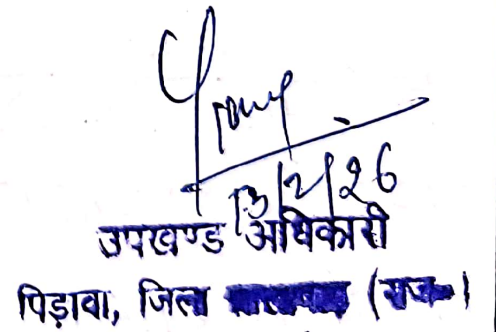 13/2/26
उपखण्ड अधिकारी
पिड़ावा, जिला (राज.)